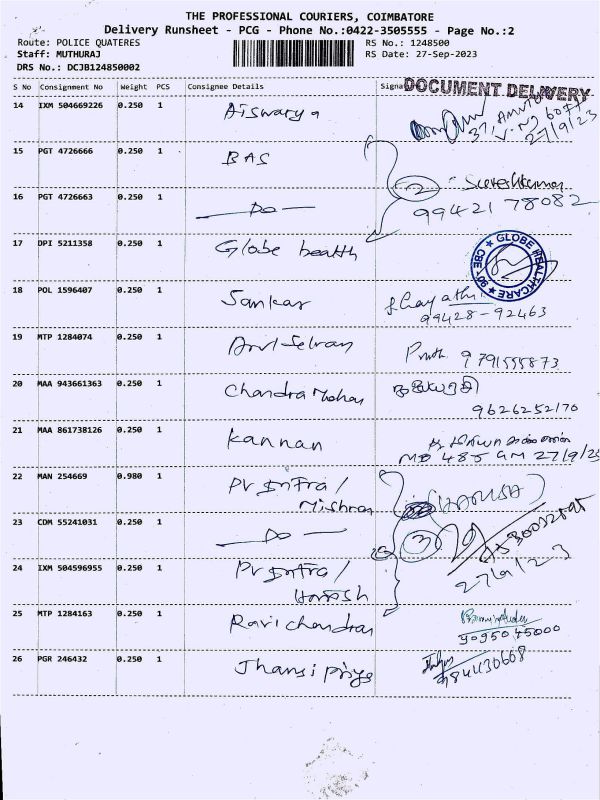 THE PROFESSIONAL COURIERS, COIMBATORE
Delivery Runsheet - PCG - Phone No.:0422-3505555 - Page No.:2
Route: POLICE QUATERES RS No.: 1248500
Staff: MUTHURAJ RS Date: 27-Sep-2023
DRS No.: DCJB124850002
S No Consignment No Weight PCS Consignee Details Signa
DOCUMENT DELIVERY
14 IXM 504669226 0.250 1 Aiswarya
27/9/23
15 PGT 4726666 0.250 1 BAS
2 Sureshkumar
16 PGT 4726663 0.250 1 — Do — 99421 78082
17 DPI 5211358 0.250 1 Globe health
GLOBE HEALTHCARE CBE - 90
18 POL 1596407 0.250 1 Sankar
99428-92463
19 MTP 1284074 0.250 1 Arul Selvan 9791555873
20 MAA 943661363 0.250 1 Chandra Mohan
9626252170
21 MAA 861738126 0.250 1 Kannan
27/9/23
22 MAN 254669 0.980 1 PV Infra / Mishran
23 CDM 55241031 0.250 1 — Do — 3
24 IXM 504596955 0.250 1 PV Infra / Harish 27/9/23
25 MTP 1284163 0.250 1 Ravichandran
9095045000
26 PGR 246432 0.250 1 Jhansi priya
9844130608